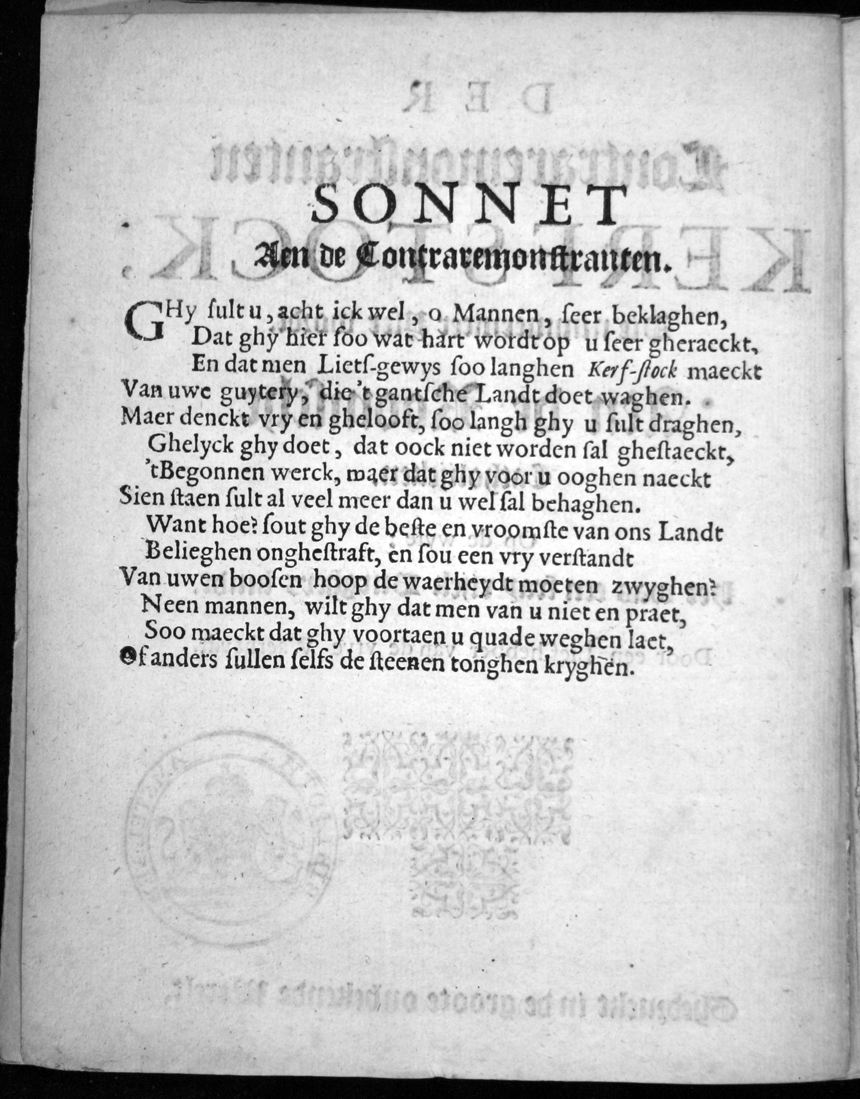 SONNET
Aen de Contraremonstranten.
GHy sult u, acht ick wel, o Mannen, seer beklaghen,
Dat ghy hier soo wat hart wordt op u seer gheraeckt,
En dat men Liets-gewys soo langhen Kerf-stock maeckt
Van uwe guytery, die 't gantsche Landt doet waghen.
Maer denckt vry en ghelooft, soo langh ghy u sult draghen,
Ghelyck ghy doet, dat oock niet worden sal ghestaeckt,
'tBegonnen werck, maer dat ghy voor u ooghen naeckt
Sien staen sult al veel meer dan u wel sal behaghen.
Want hoe? sout ghy de beste en vroomste van ons Landt
Belieghen onghestraft, en sou een vry verstandt
Van uwen boosen hoop de waerheydt moeten zwyghen?
Neen mannen, wilt ghy dat men van u niet en praet,
Soo maeckt dat ghy voortaen u quade weghen laet,
Of anders sullen selfs de steenen tonghen kryghen.